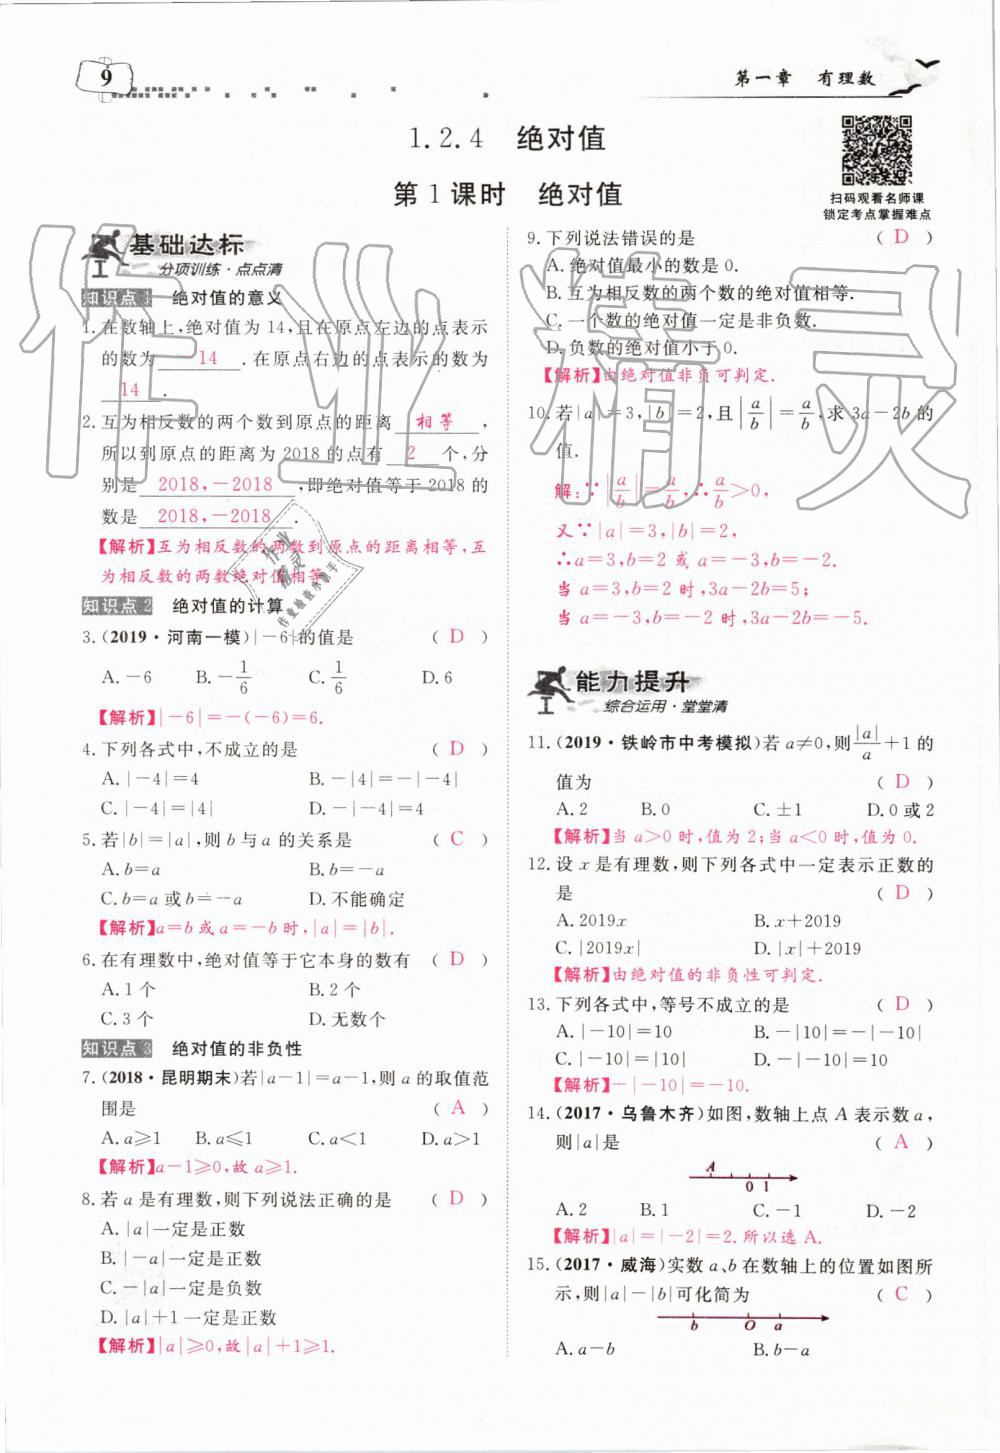 9
第一章 有理数
1.2.4 绝对值
第1课时 绝对值
扫码观看名师课
锁定考点掌握难点
基础达标
分项训练·点点清
知识点1 绝对值的意义
1.在数轴上,绝对值为14,且在原点左边的点表示
的数为 14 .在原点右边的点表示的数为
14 .
2.互为相反数的两个数到原点的距离 相等 ,
所以到原点的距离为2018的点有 2 个,分
别是 2018,-2018 ,即绝对值等于2018的
数是 2018,-2018 .
【解析】互为相反数的两数到原点的距离相等,互
为相反数的两数绝对值相等.
知识点2 绝对值的计算
3.(2019·河南一模)|-6|的值是 ( D )
A.-6 B.-1/6 C.1/6 D.6
【解析】|-6|=-(-6)=6.
4.下列各式中,不成立的是 ( D )
A.|-4|=4 B.-|4|=-|-4|
C.|-4|=|4| D.-|-4|=4
5.若|b|=|a|,则b与a的关系是 ( C )
A.b=a B.b=-a
C.b=a或b=-a D.不能确定
【解析】a=b或a=-b时,|a|=|b|.
6.在有理数中,绝对值等于它本身的数有 ( D )
A.1个 B.2个
C.3个 D.无数个
知识点3 绝对值的非负性
7.(2018·昆明期末)若|a-1|=a-1,则a的取值范
围是 ( A )
A.a≥1 B.a≤1 C.a<1 D.a>1
【解析】a-1≥0,故a≥1.
8.若a是有理数,则下列说法正确的是 ( D )
A.|a|一定是正数
B.|-a|一定是正数
C.-|a|一定是负数
D.|a|+1一定是正数
【解析】|a|≥0,故|a|+1≥1.
9.下列说法错误的是 ( D )
A.绝对值最小的数是0.
B.互为相反数的两个数的绝对值相等.
C.一个数的绝对值一定是非负数.
D.负数的绝对值小于0.
【解析】由绝对值非负可判定.
10.若|a|=3,|b|=2,且|a/b|=a/b,求3a-2b的
值.
解:∵|a/b|=a/b,∴a/b>0,
又∵|a|=3,|b|=2,
∴a=3,b=2或a=-3,b=-2.
当a=3,b=2时,3a-2b=5;
当a=-3,b=-2时,3a-2b=-5.
能力提升
综合运用·堂堂清
11.(2019·铁岭市中考模拟)若a≠0,则|a|/a+1的
值为 ( D )
A.2 B.0 C.±1 D.0或2
【解析】当a>0时,值为2;当a<0时,值为0.
12.设x是有理数,则下列各式中一定表示正数的
是 ( D )
A.2019x B.x+2019
C.|2019x| D.|x|+2019
【解析】由绝对值的非负性可判定.
13.下列各式中,等号不成立的是 ( D )
A.|-10|=10 B.-|10|=-|-10|
C.|-10|=|10| D.-|-10|=10
【解析】-|-10|=-10.
14.(2017·乌鲁木齐)如图,数轴上点A表示数a,
则|a|是 ( A )
A
0 1
A.2 B.1 C.-1 D.-2
【解析】|a|=|-2|=2.所以选A.
15.(2017·威海)实数a、b在数轴上的位置如图所
示,则|a|-|b|可化简为 ( C )
b O a
A.a-b B.b-a
作业精灵
作业
精灵
作业检查小助手